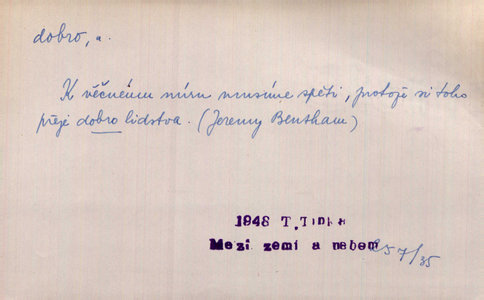 dobro, n.
K věčnému míru musíme spěti, protože si toho
přeje dobro lidstva. (Jeremy Bentham)
1948 T. Tinka
Mezi zemi a nebem
257/35